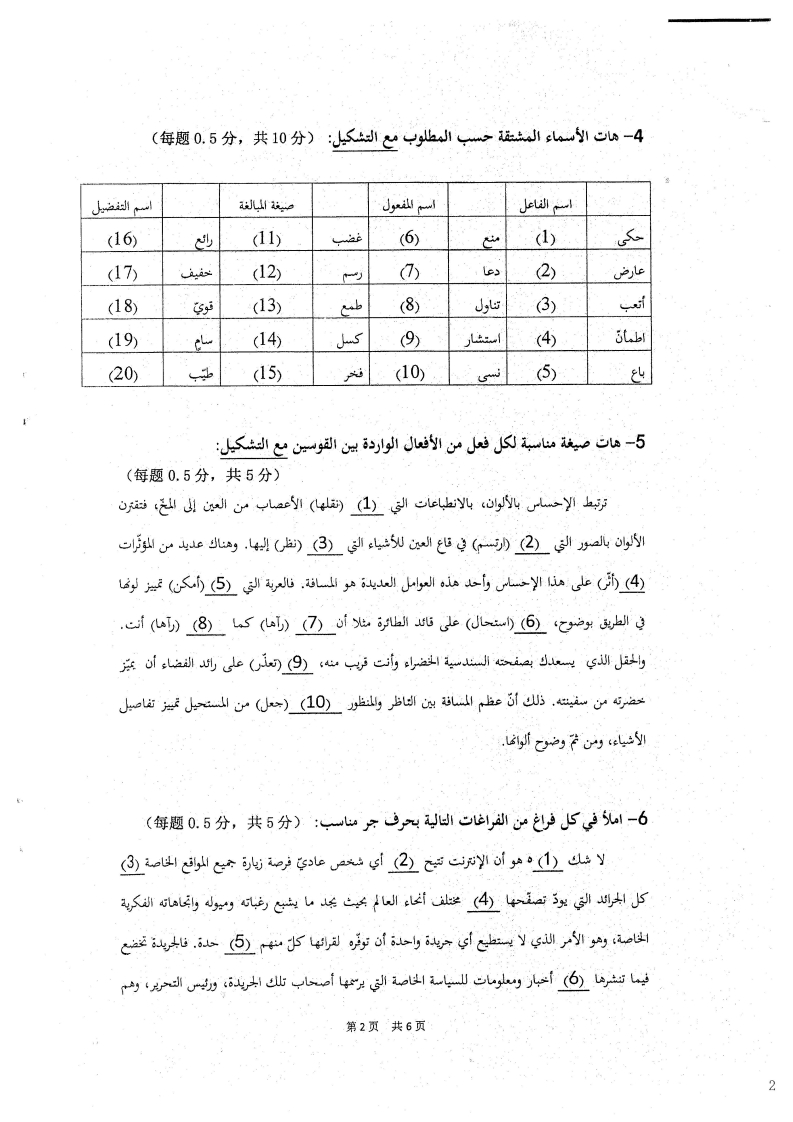 4- هات الأسماء المشتقة حسب المطلوب مع التشكيل: (每题 0.5 分，共 10 分)
اسم الفاعل اسم المفعول صيغة المبالغة اسم التفضيل
حكى (1) منع (6) غضب (11) رائع (16)
عارض (2) دعا (7) رسم (12) خفيف (17)
أتعب (3) تناول (8) طمع (13) قويّ (18)
اطمأنّ (4) استشار (9) كسل (14) سامٍ (19)
باع (5) نسى (10) فخر (15) طيّب (20)
5- هات صيغة مناسبة لكل فعل من الأفعال الواردة بين القوسين مع التشكيل:
(每题 0.5 分，共 5 分)
ترتبط الإحساس بالألوان، بالانطباعات التي (1) (نقلها) الأعصاب من العين إلى المخّ، فتقترن
الألوان بالصور التي (2) (ارتسم) في قاع العين للأشياء التي (3) (نظر) إليها. وهناك عديد من المؤثّرات
(4) (أثّر) على هذا الإحساس وأحد هذه العوامل العديدة هو المسافة. فالعربة التي (5) (أمكن) تمييز لونها
في الطريق بوضوح، (6) (استحال) على قائد الطائرة مثلا أن (7) (رآها) كما (8) (رآها) أنت.
والحقل الذي يسعدك بصفحته السندسية الخضراء وأنت قريب منه، (9) (تعذّر) على رائد الفضاء أن يميّز
خضرته من سفينته. ذلك أنّ عظم المسافة بين الناظر والمنظور (10) (جعل) من المستحيل تمييز تفاصيل
الأشياء، ومن ثمّ وضوح ألوانها.
6- املأ في كل فراغ من الفراغات التالية بحرف جر مناسب: (每题 0.5 分，共 5 分)
لا شك (1) ه هو أن الإنترنت تتيح (2) أي شخص عاديّ فرصة زيارة جميع المواقع الخاصة (3)
كل الجرائد التي يودّ تصفّحها (4) مختلف أنحاء العالم بحيث يجد ما يشبع رغباته وميوله واتجاهاته الفكرية
الخاصة، وهو الأمر الذي لا يستطيع أي جريدة واحدة أن توفّره لقرائها كلّ منهم (5) حدة. فالجريدة تخضع
فيما تنشرها (6) أخبار ومعلومات للسياسة الخاصة التي يرسمها أصحاب تلك الجريدة، ورئيس التحرير، وهم
第 2 页 共 6 页
2